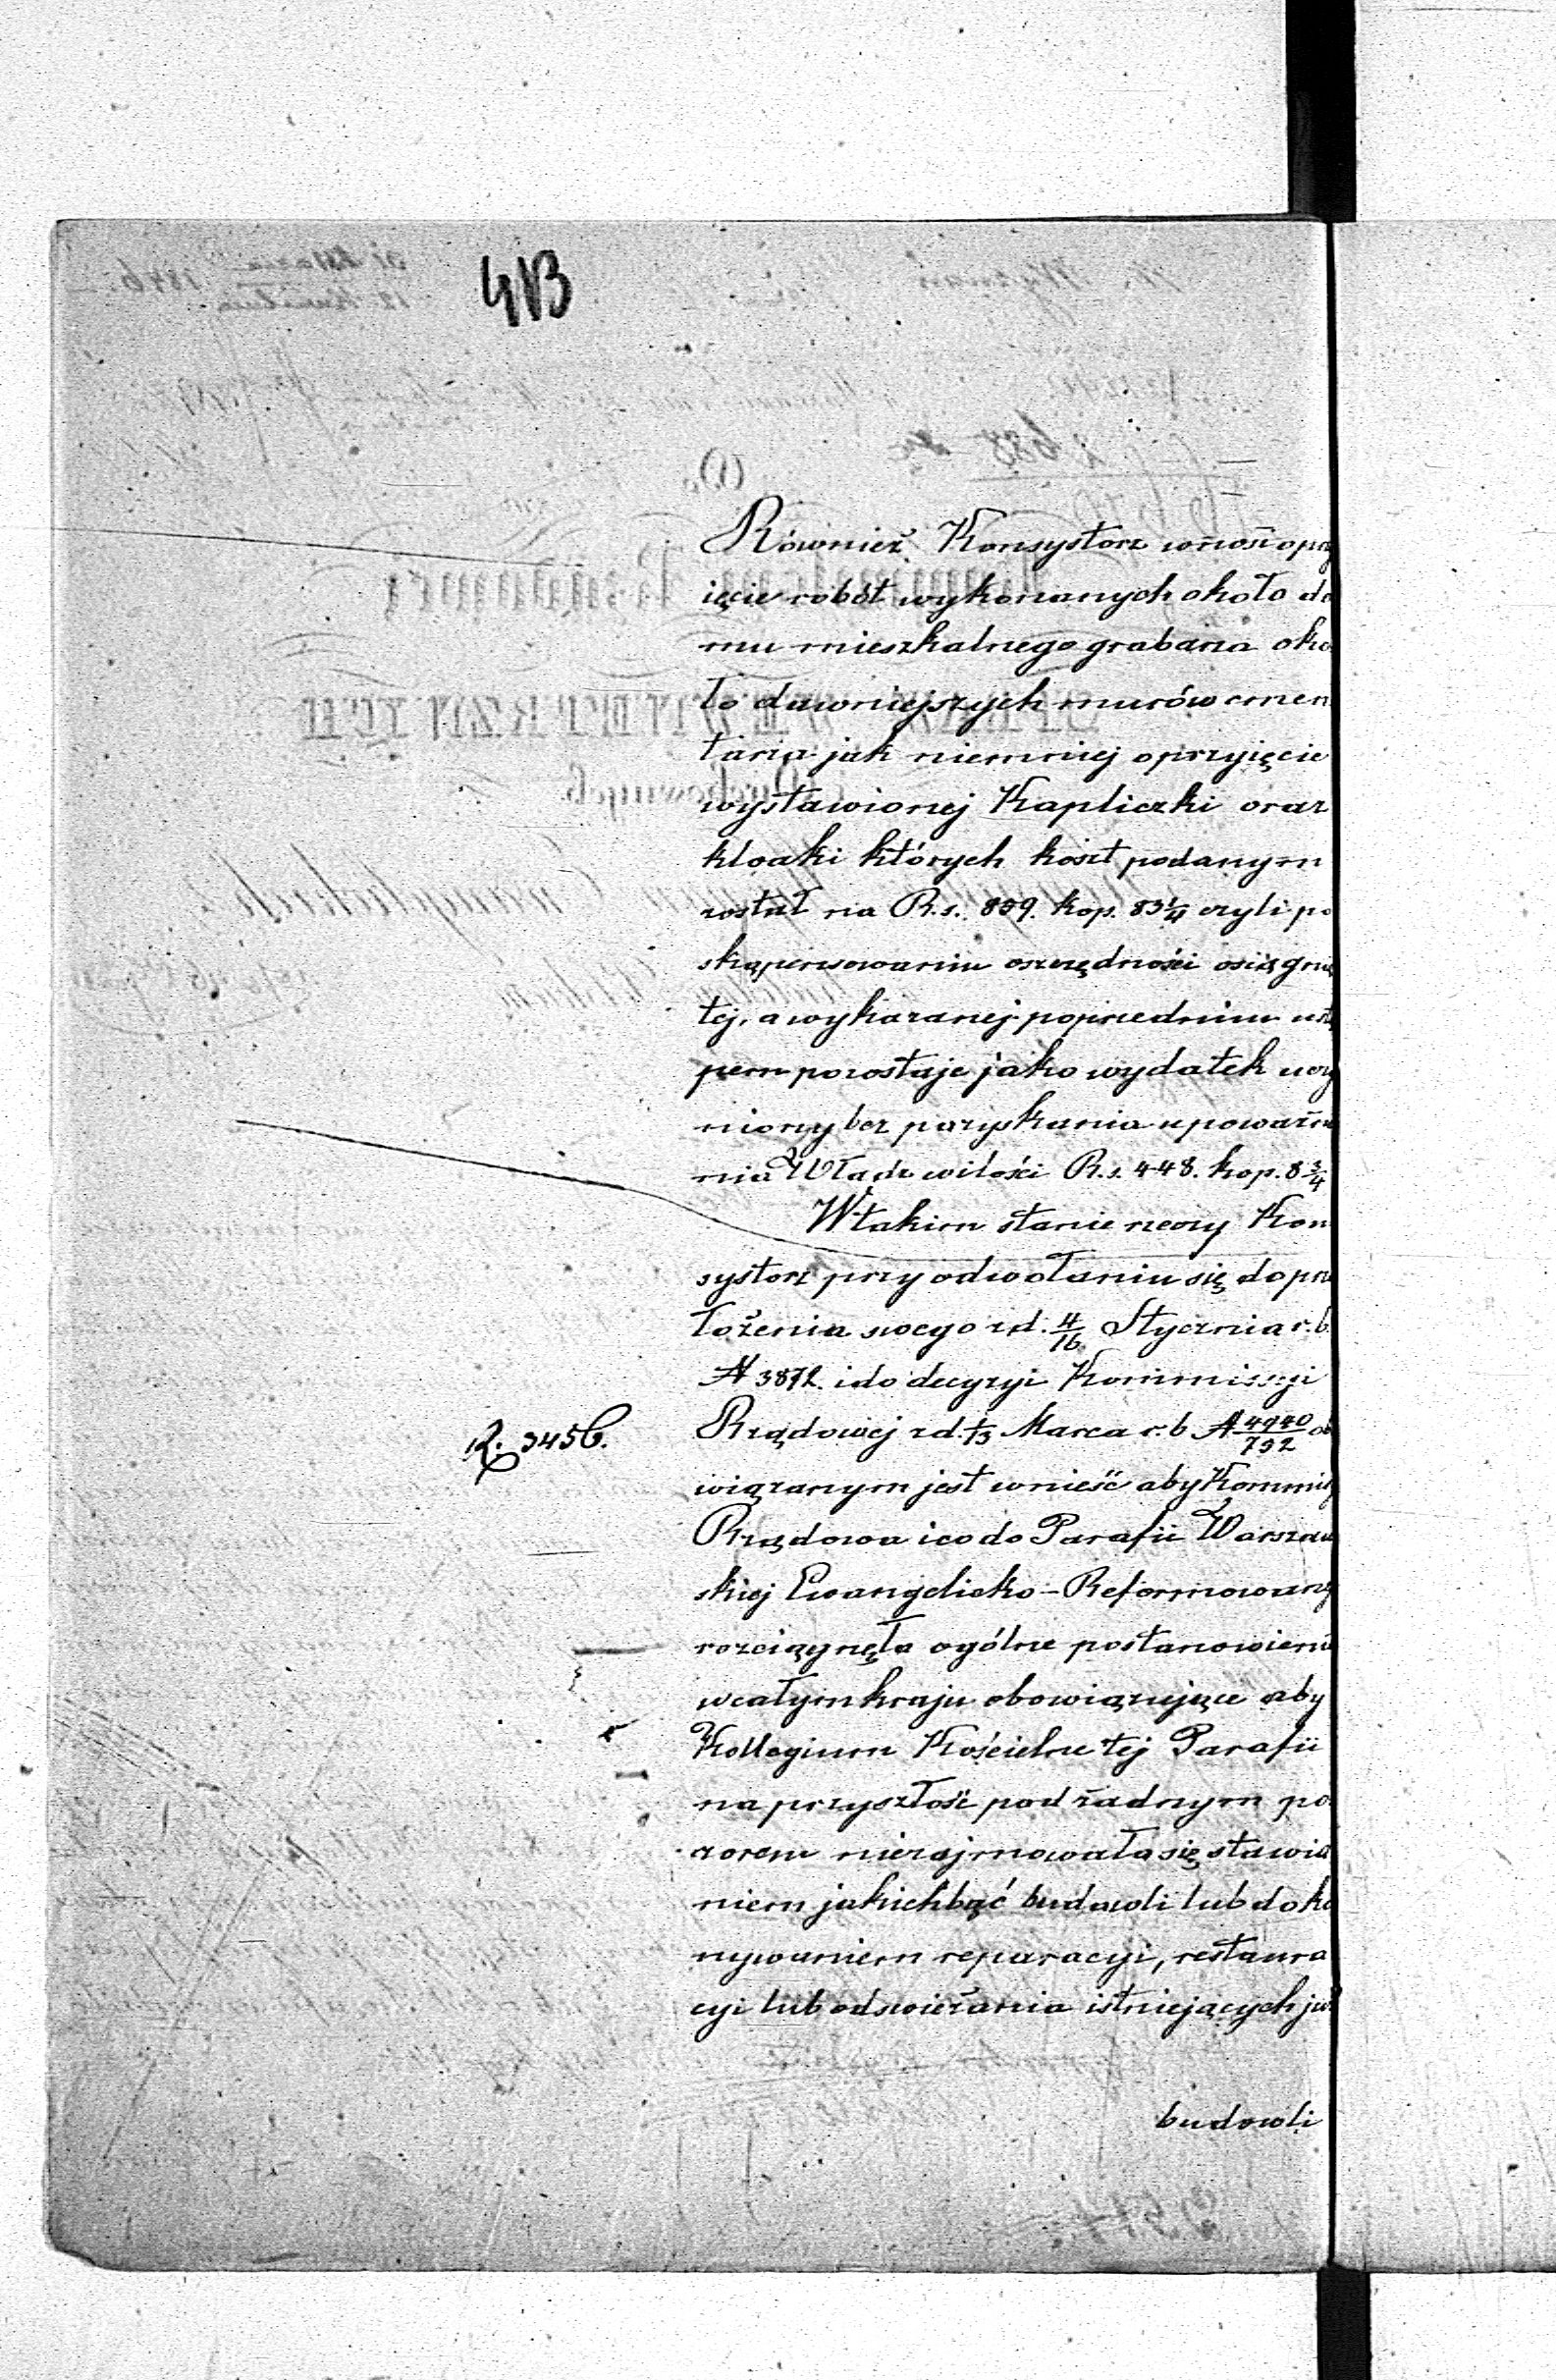 413
Również Konsystorz wnosi o prz
ięcie robót wykonanych około do
mu mieszkalnego grabarza oko
ło dawniejszych murów cmen
tarza jak niemniej o przyięcie
wystawionej Kapliczki oraz
kloaki których koszt podanym
został na R.s. 859. kop. 83 1/4 czyli po
skąpensowaniu oszczędności osiągnię
tej, a wykazanej poprzednim ustę
pem pozostaje jako wydatek uczy
niony bez pozyskania upoważnie
nia Władz w ilości R.s. 448. kop. 8 3/4
W takim stanie rzeczy Kon
systorz przy odwołaniu się do prze
łożenia swego z d. 4/16 Stycznia r. b.
N 3872. i do decyzyi Kommissyi
R. 3456.
Rządowej z d. 1/13 Marca r. b. N 4940/732 ob
wiązanym jest wnieść aby Kommis
Rządowa i co do Parafii Warszaw
skiej Ewangelicko-Reformowanej
rozciągnęła ogólne postanowienia
w całym kraju obowiązujące aby
Kollegium Kościelne tej Parafii
na przyszłość pod żadnym po
zorem niezajmowała się stawia
niem jakichbąć budowli lub doko
nywaniem reparacyi, restaura
cyi lub odswieżania istniejących już
budowli